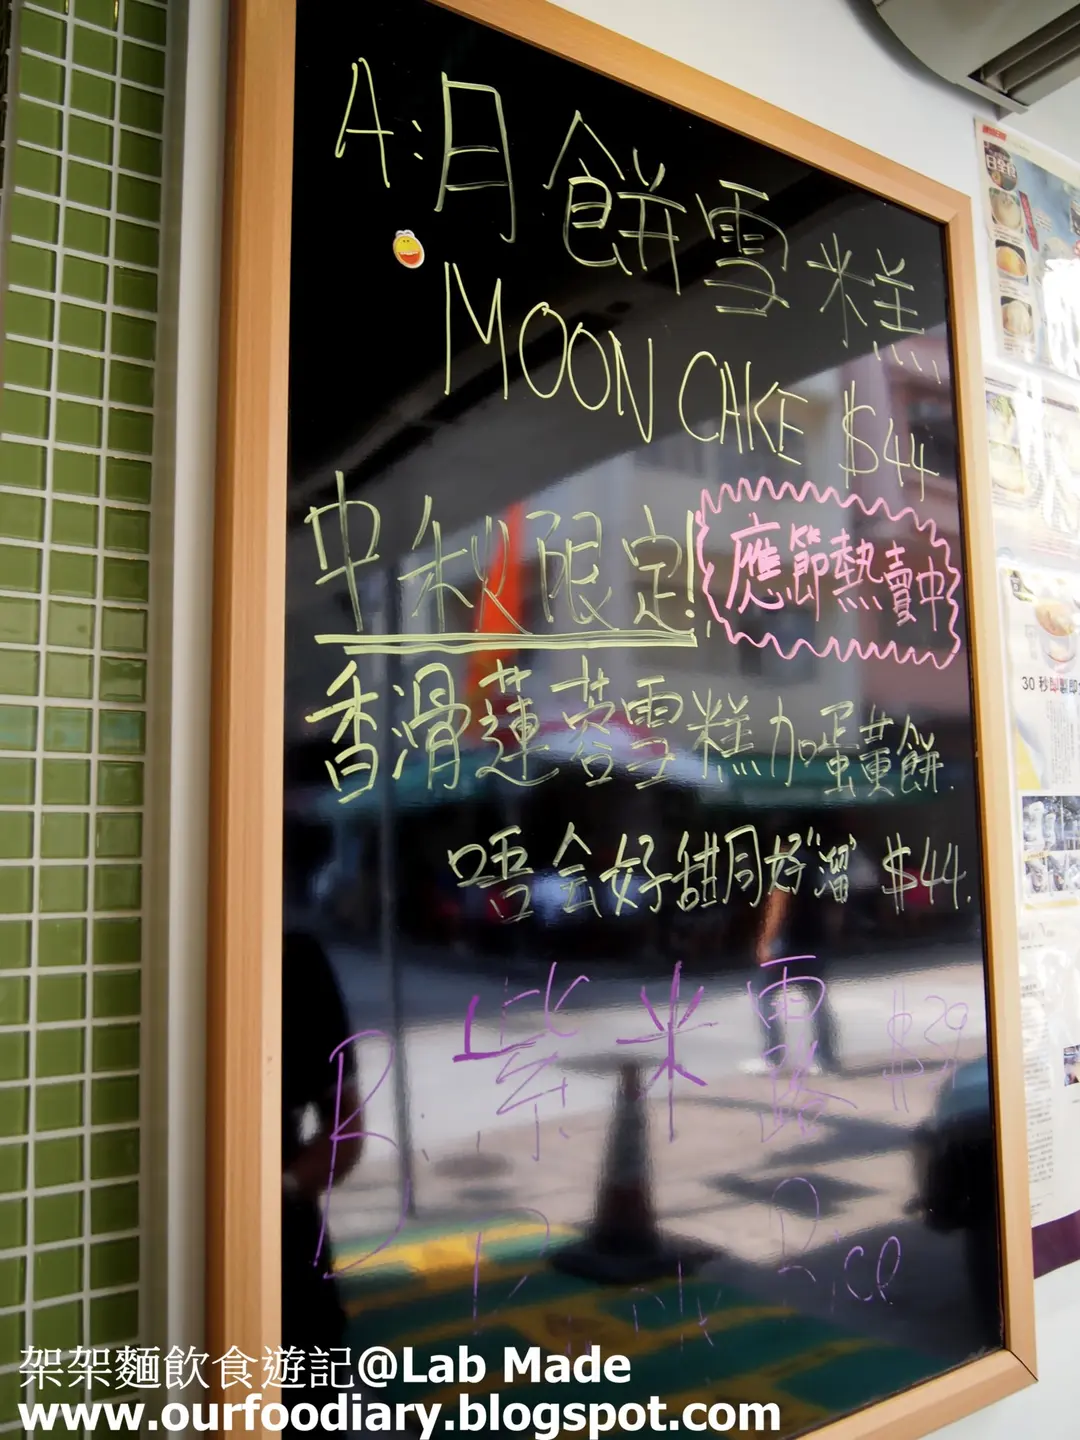 A:月餅雪糕
MOON CAKE $44
中秋限定!
應節熱賣中
香滑蓮蓉雪糕加蛋黃餅.
唔会好甜同好"溜" $44.
B 紫米露 $39
Rice
30 秒即製即
架架麵飲食遊記@Lab Made
www.ourfoodiary.blogspot.com